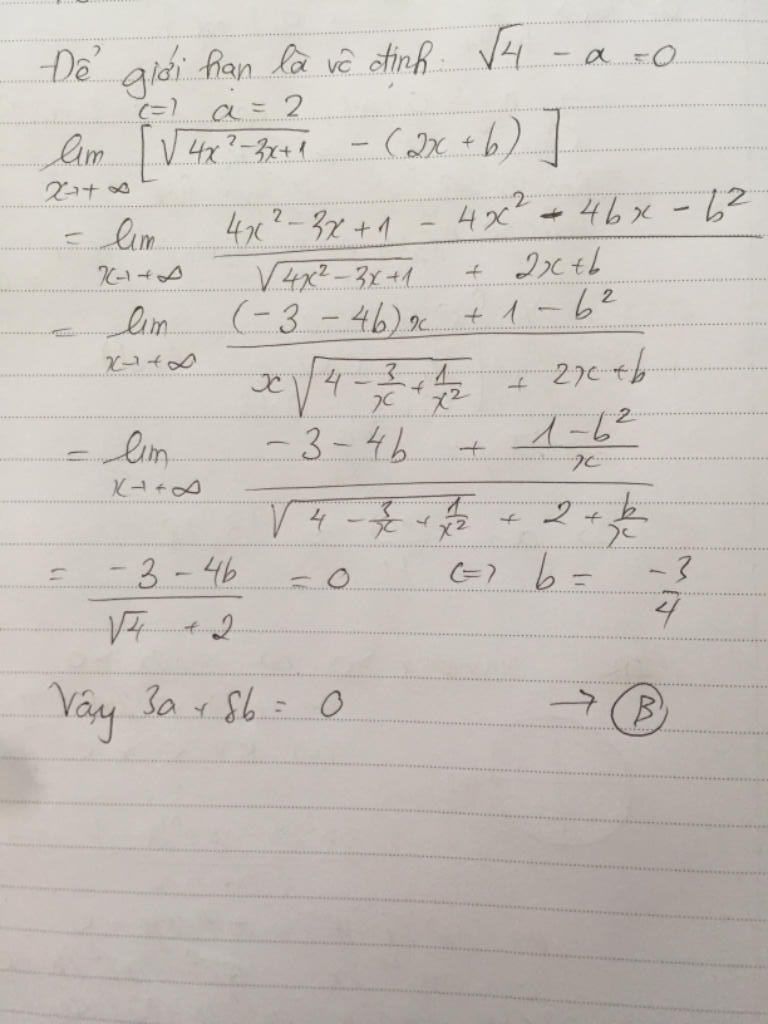 Để giới hạn là vô định: √4 - a = 0
<=> a = 2
lim x→+∞ [√(4x² - 3x + 1) - (2x + b)]
= lim x→+∞ (4x² - 3x + 1 - 4x² - 4bx - b²) / (√(4x² - 3x + 1) + 2x + b)
= lim x→+∞ ((-3 - 4b)x + 1 - b²) / (x√(4 - 3/x + 1/x²) + 2x + b)
= lim x→+∞ (-3 - 4b + (1 - b²)/x) / (√(4 - 3/x + 1/x²) + 2 + b/x)
= (-3 - 4b) / (√4 + 2) = 0 <=> b = -3/4
Vậy 3a + 8b = 0 → B